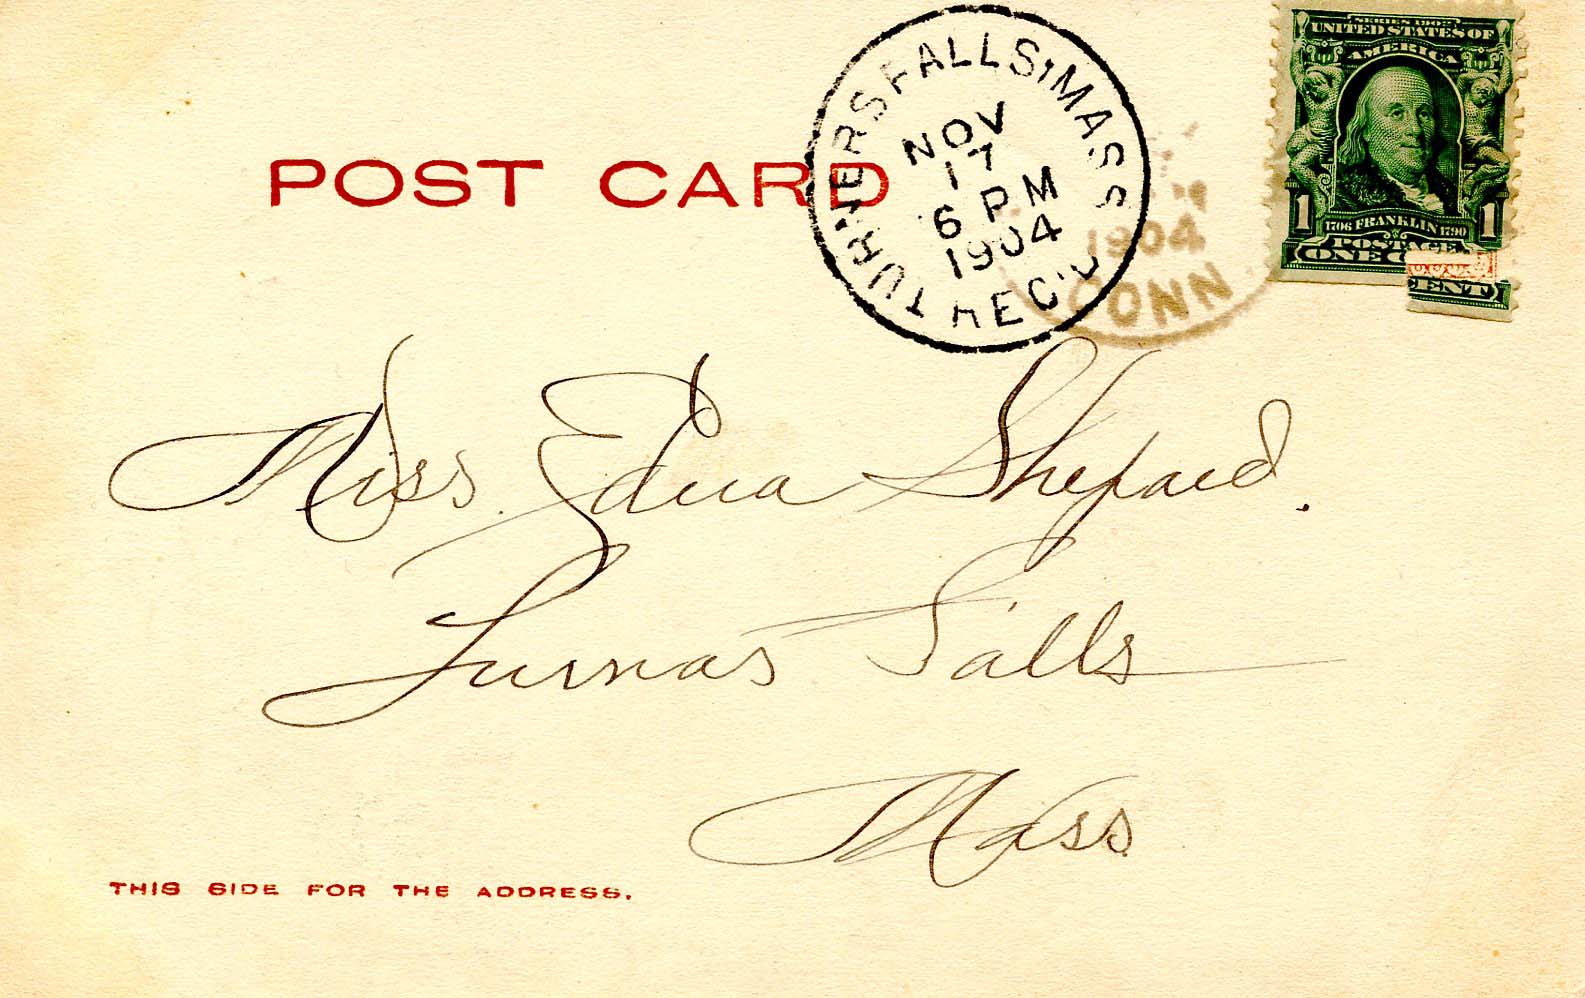 SERIES 1902
UNITED STATES OF
AMERICA
1 1706 FRANKLIN 1790 1
POSTAGE
ONE CENT
TURNERS FALLS, MASS
NOV
17
6 PM
1904
REC'D
1904
CONN
POST CARD
Miss. Edna Shepard.
Turnas Falls
Mass
THIS SIDE FOR THE ADDRESS.